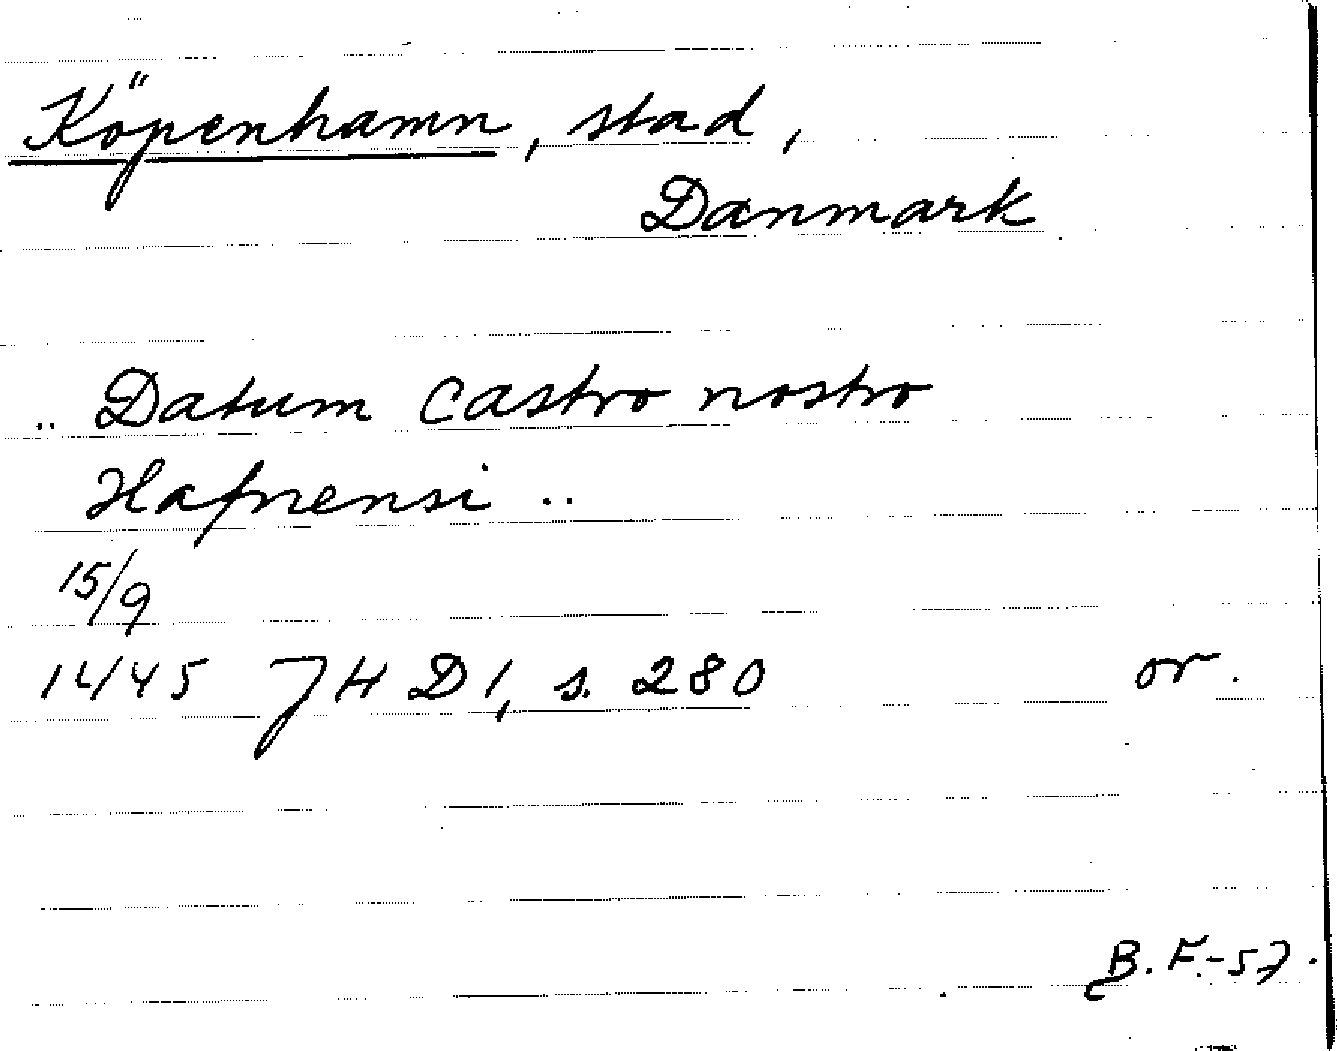 Köpenhamn, stad,
Danmark
.. Datum castro nostro
Hafnensi ..
15/9
1445 JHD 1, s. 280 or.
B.F.-57.